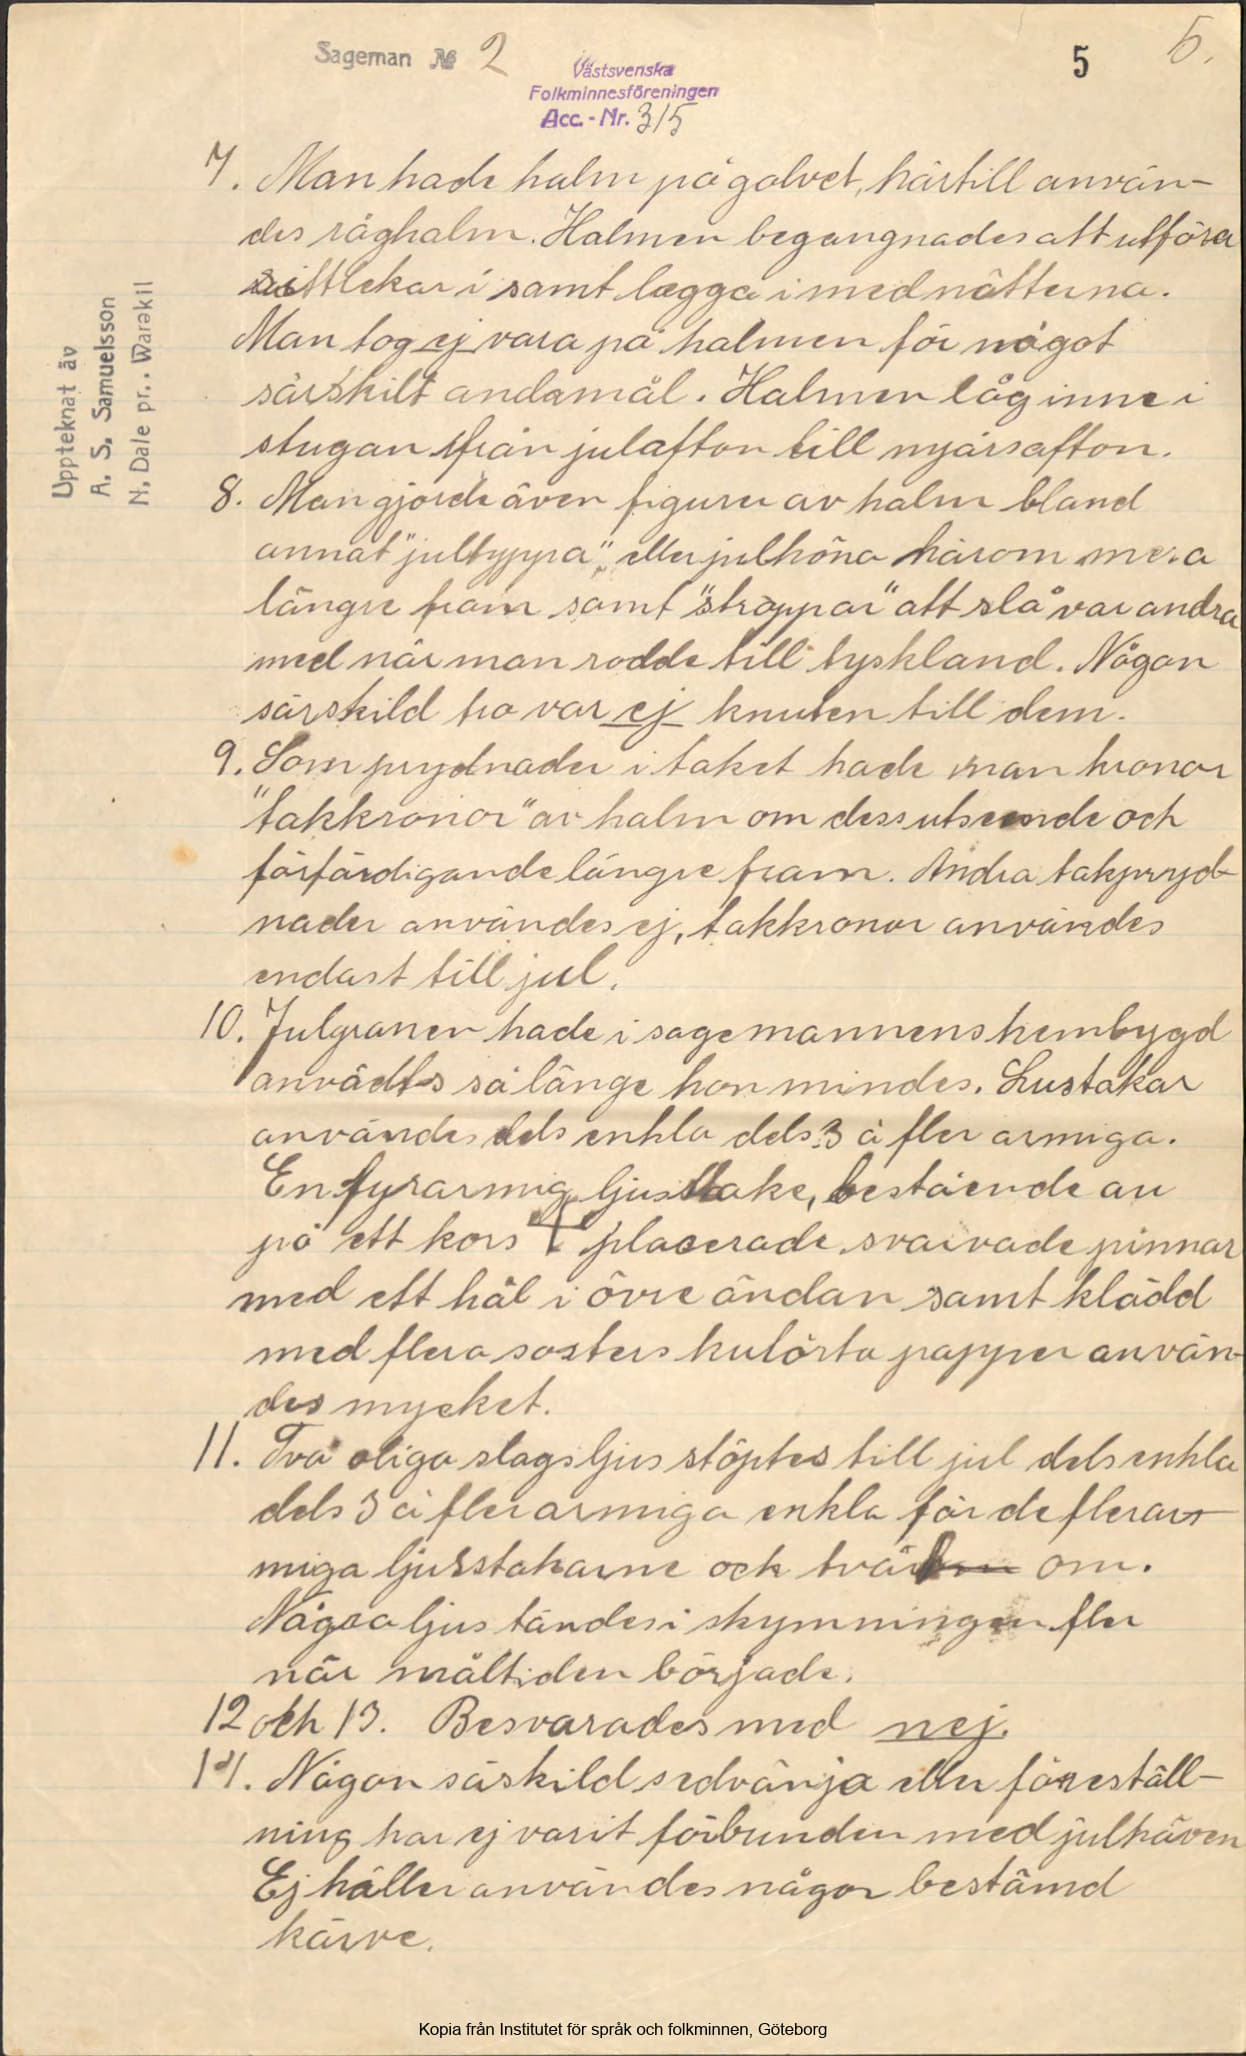 Sageman № 2
Västsvenska
Folkminnesföreningen
Acc. - Nr. 315
5
5.
Upptecknat av
A. S. Samuelsson
N. Dale pr., Warekil
7. Man hade halm på golvet, härtill använ-
des råghalm. Halmen begangnades att utföra
sittlekar i samt lægga i med nätterna.
Man tog ej vara på halmen för något
särskilt andamål. Halmen låg inne i
stugan från julafton till nyårsafton.
8. Man gjorde även figurer av halm bland
annat "jultyppa", eller julhöna härom mera
längre fram samt "stroppar" att slå varandra
med när man rodde till tyskland. Någon
särskild tro var ej knuten till dem.
9. Som prydnader i taket hade man kronor
"takkronor" av halm om dess utseende och
förfärdigande längre fram. Andra takpryd-
nader användes ej, takkronor användes
endast till jul.
10. Julgranen hade i sagemannens hembygd
anvädts så länge hon mindes. Lustakar
användes dels enkla dels 3 à fler armiga.
En fyrarmig ljusstake, bestående av
på ett kors placerade svarvade pinnar
med ett hål i övre ändan samt klädd
med flera sosters kulörta papper använ-
des mycket.
11. Två oliga slags ljus stöptes till jul dels enkla
dels 3 à fler armiga enkla för de flerar-
miga ljusstakarne ock tvär om.
Några ljus tändes i skymningen fler
när måltiden började.
12 och 13. Besvarades med nej.
14. Någon särskild sedvänja eller föreställ-
ning har ej varit förbunden med julkärven
Ej håller användes någon bestämd
kärve.
Kopia från Institutet för språk och folkminnen, Göteborg